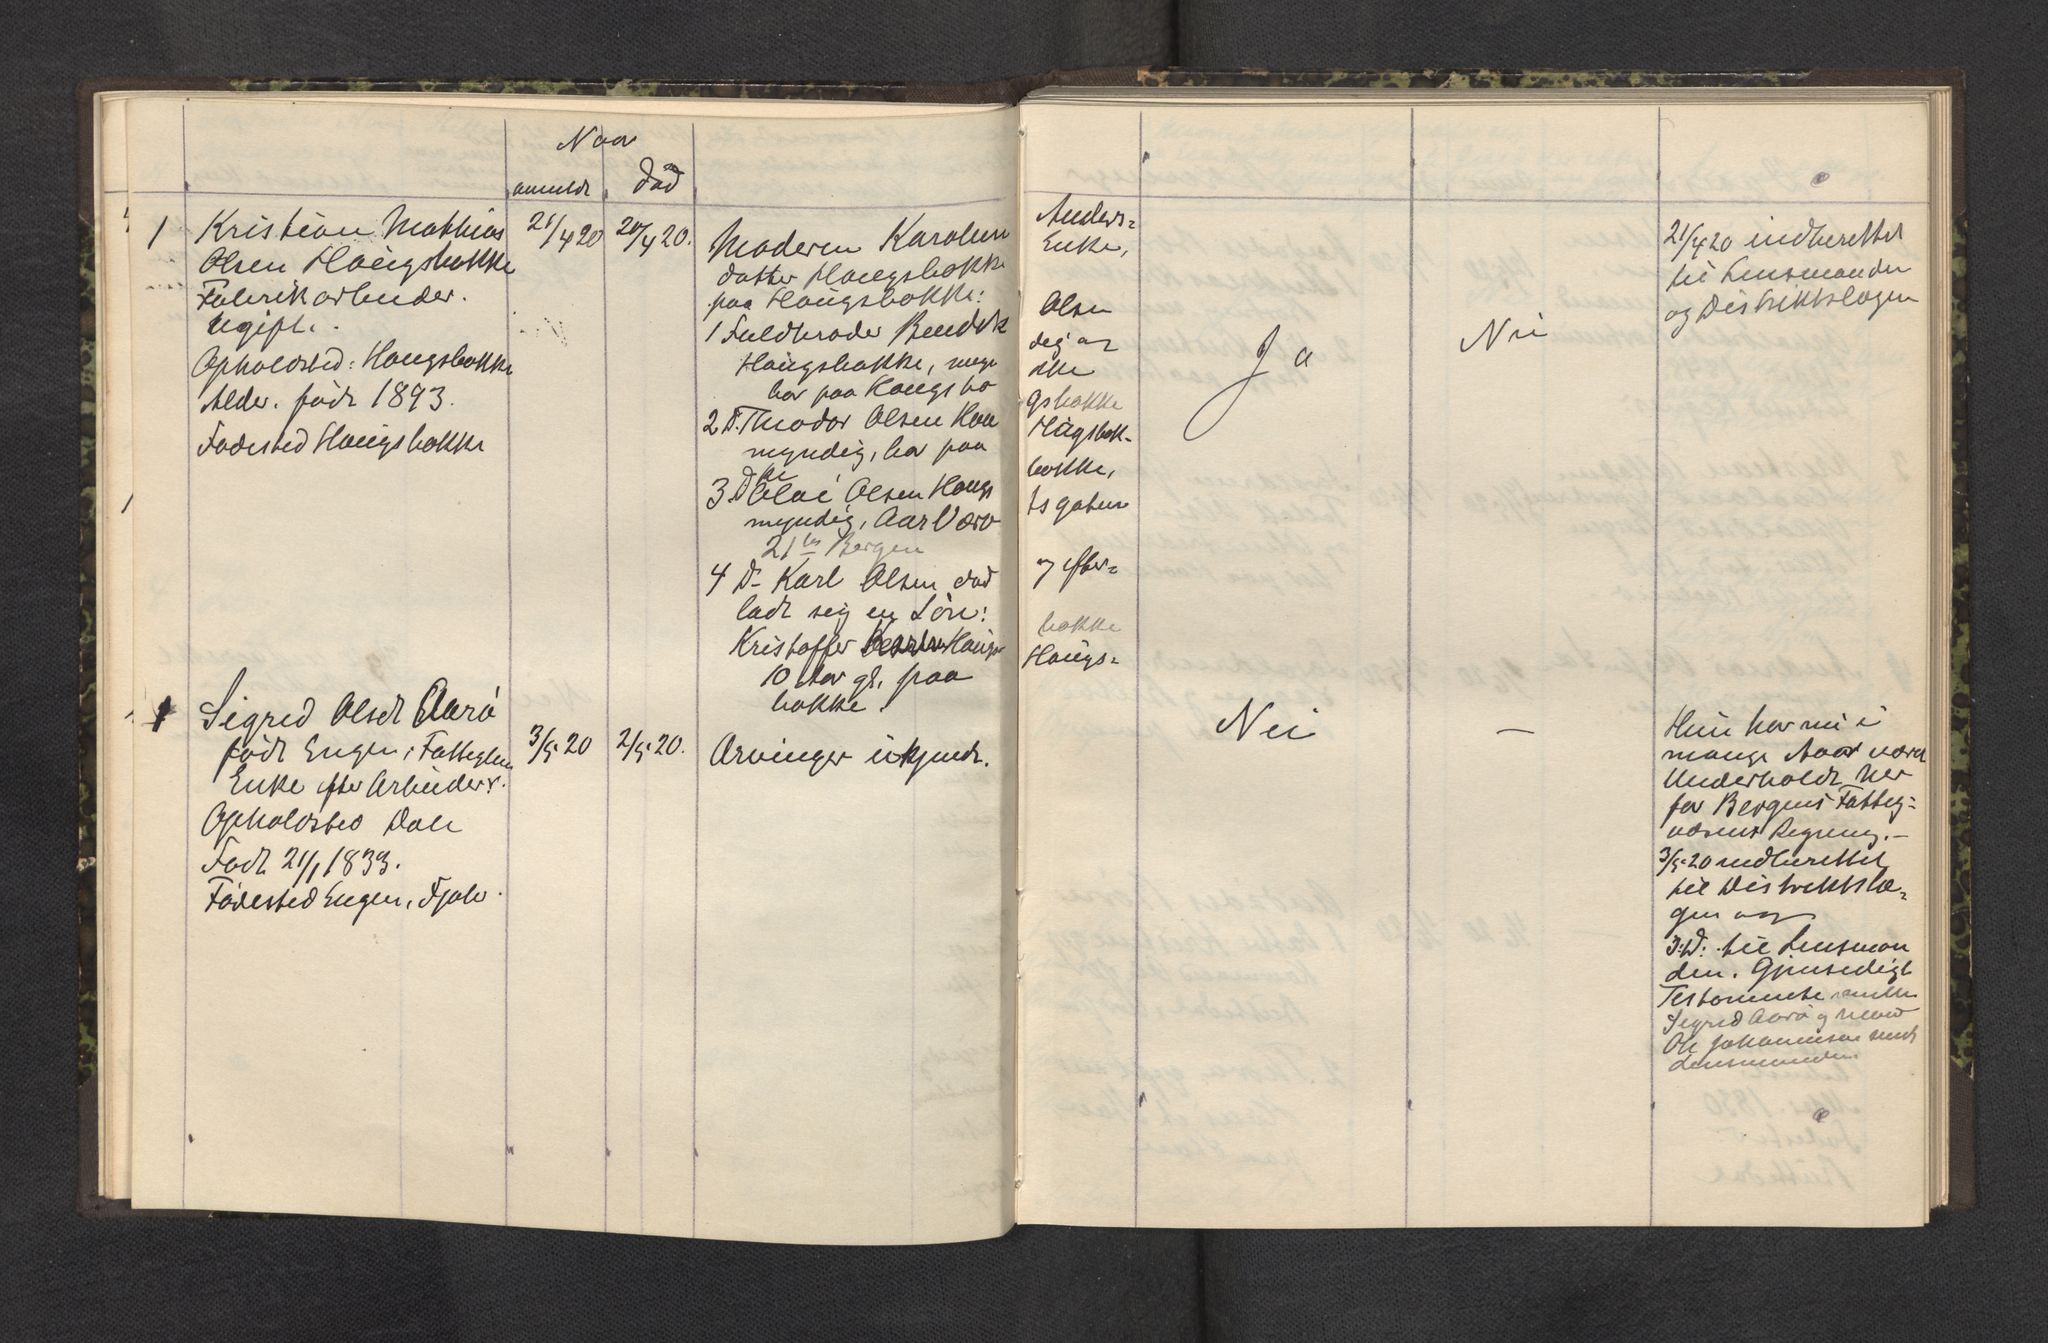 Naar
anmeldt død
1 Kristian Mathias
Olsen Haugsbakke
Fabrikarbeider.
Ugift.
Opholdsted: Haugsbakke
Alder. født 1893.
Fødested Haugsbakke
21/4 20 20/4 20.
Moderen Karoline Anders=
datter Haugsbakke Enke,
paa Haugsbakke:
1 Fuldbroder Bendik Olsen
Haugsbakke, myn dig og
bor paa Haugsba kke
2 D. Theodor Olsen Hau gsbakke
myndig, bor paa Haugsbak-
ke
3 D Olai Olsen Haugs bakke,
myndig, ts gaten
21 Bergen
4 D- Karl Olsen død og efter=
ladt sig en Søn:
Kristoffer Haugs- bakke
10 Aar gl. paa Haugs=
bakke.
Ja
Nei
21/4 20 indberettet
til Lensmanden
og Distriktslægen
1 Sigred Olsdt Aarø
født Engen, Fattiglem
Enke efter Arbeider.
Opholdsted Dale
Født 21/1 1833.
Fødested Engen, Fjaler.
3/5 20 2/5 20.
Arvinger ukjendt.
Nei
—
Hun har nu i
mange Aar været
Underholdt her
for Bergens Fattig=
væsens Regning.—
3/5 20 indberettet
til Distriktslæ=
gen og
S.D. til Lensman
den. Gjensidigt
Testamente mellem
Sigred Aarø og Mand
Ole Johannesen sendt
Lensmanden